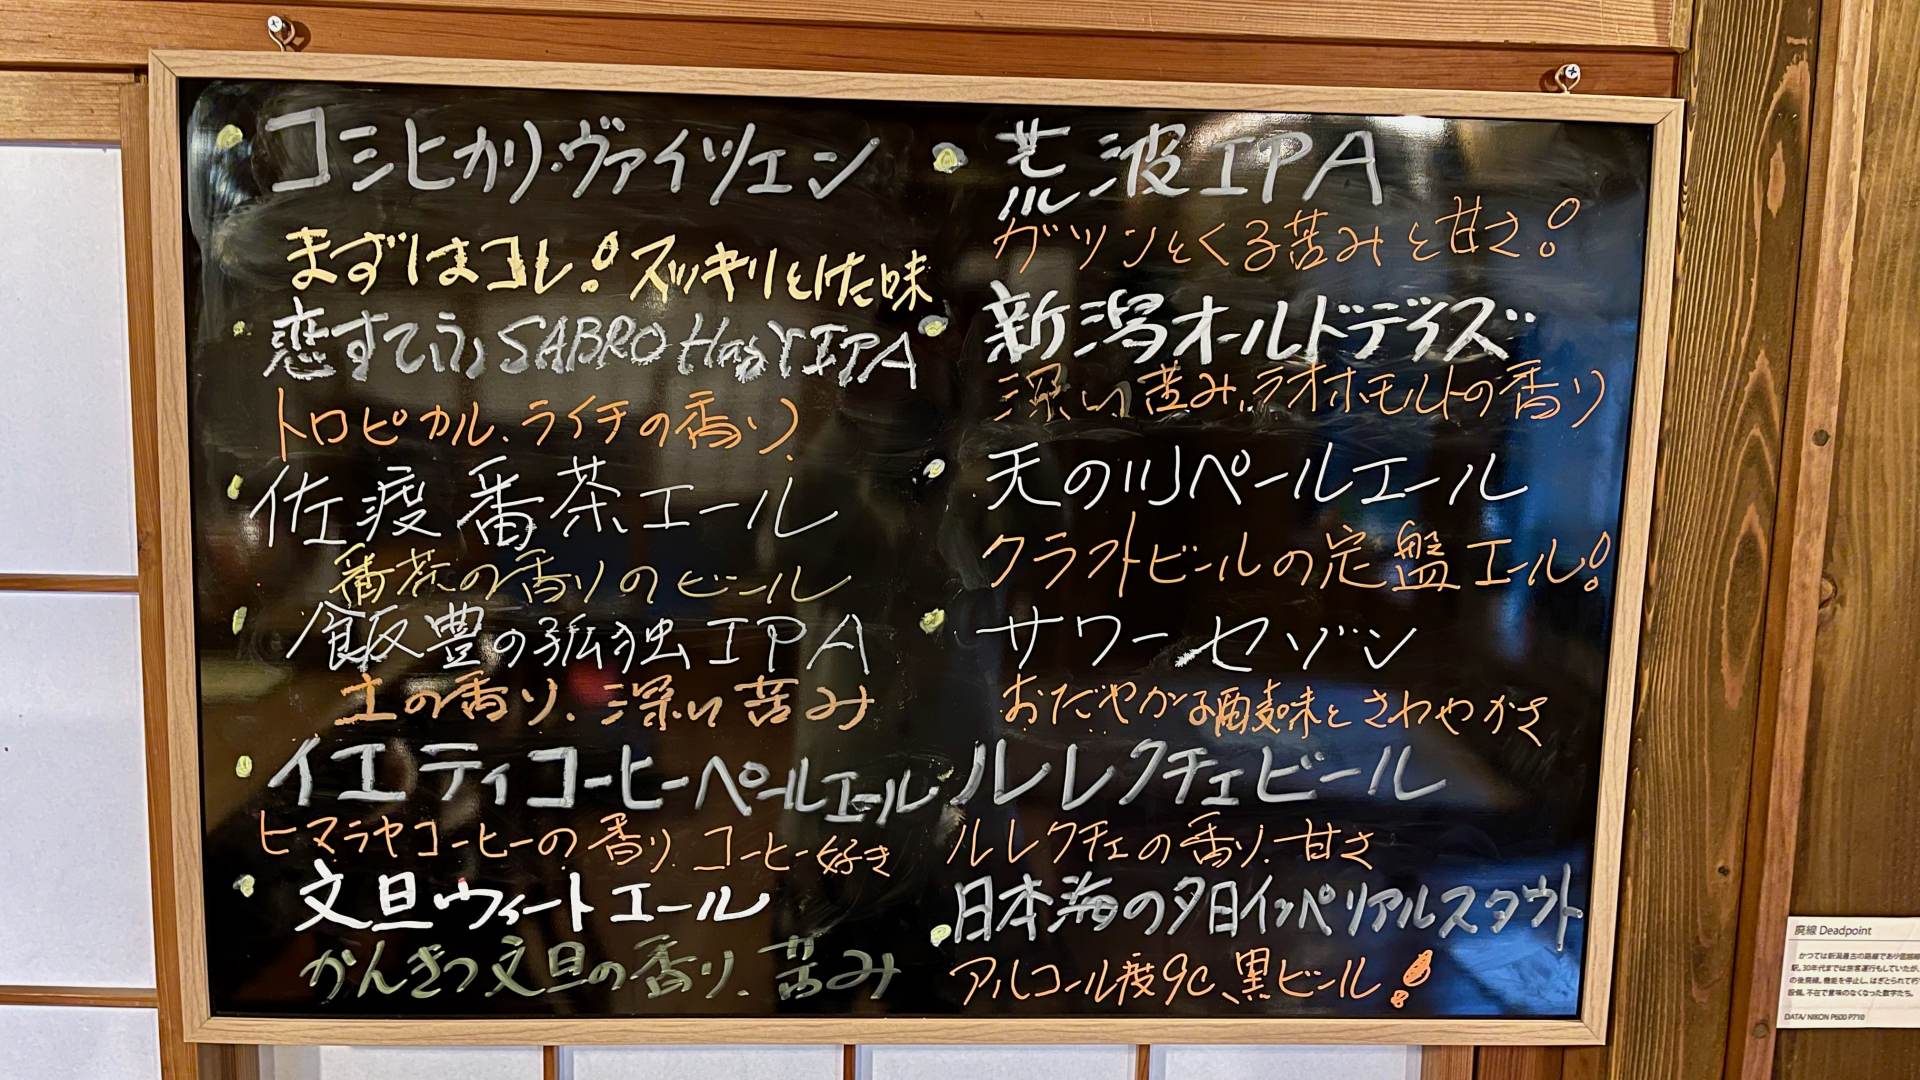 コシヒカリ・ヴァイツェン
まずはコレ!スッキリとした味
恋すてふSABRO HazY IPA
トロピカル、ライチの香り
佐渡番茶エール
番茶の香りのビール
飯豊の孤独IPA
土の香り、深い苦み
イエティコーヒーペールエール
ヒマラヤコーヒーの香り、コーヒー好き
文旦ウィートエール
かんきつ文旦の香り、苦み
荒波IPA
ガツンとくる苦みと甘さ!
新潟オールドデイズ
深い苦み、ラオホモルトの香り
天の川ペールエール
クラフトビールの定盤エール!
サワーセゾン
おだやかな酸味とさわやかさ
ルレクチェビール
ルレクチェの香り、甘さ
日本海の夕日インペリアルスタウト
アルコール度9%、黒ビール!
廃線 Deadpoint
かつては新潟最古の路線であり信越線
駅。30年代までは旅客運行もしていたが、
の後廃線。機能を停止し、はぎとられて朽ち
設備。不在で意味のなくなった数字たち。
DATA/ NIKON P600 P710